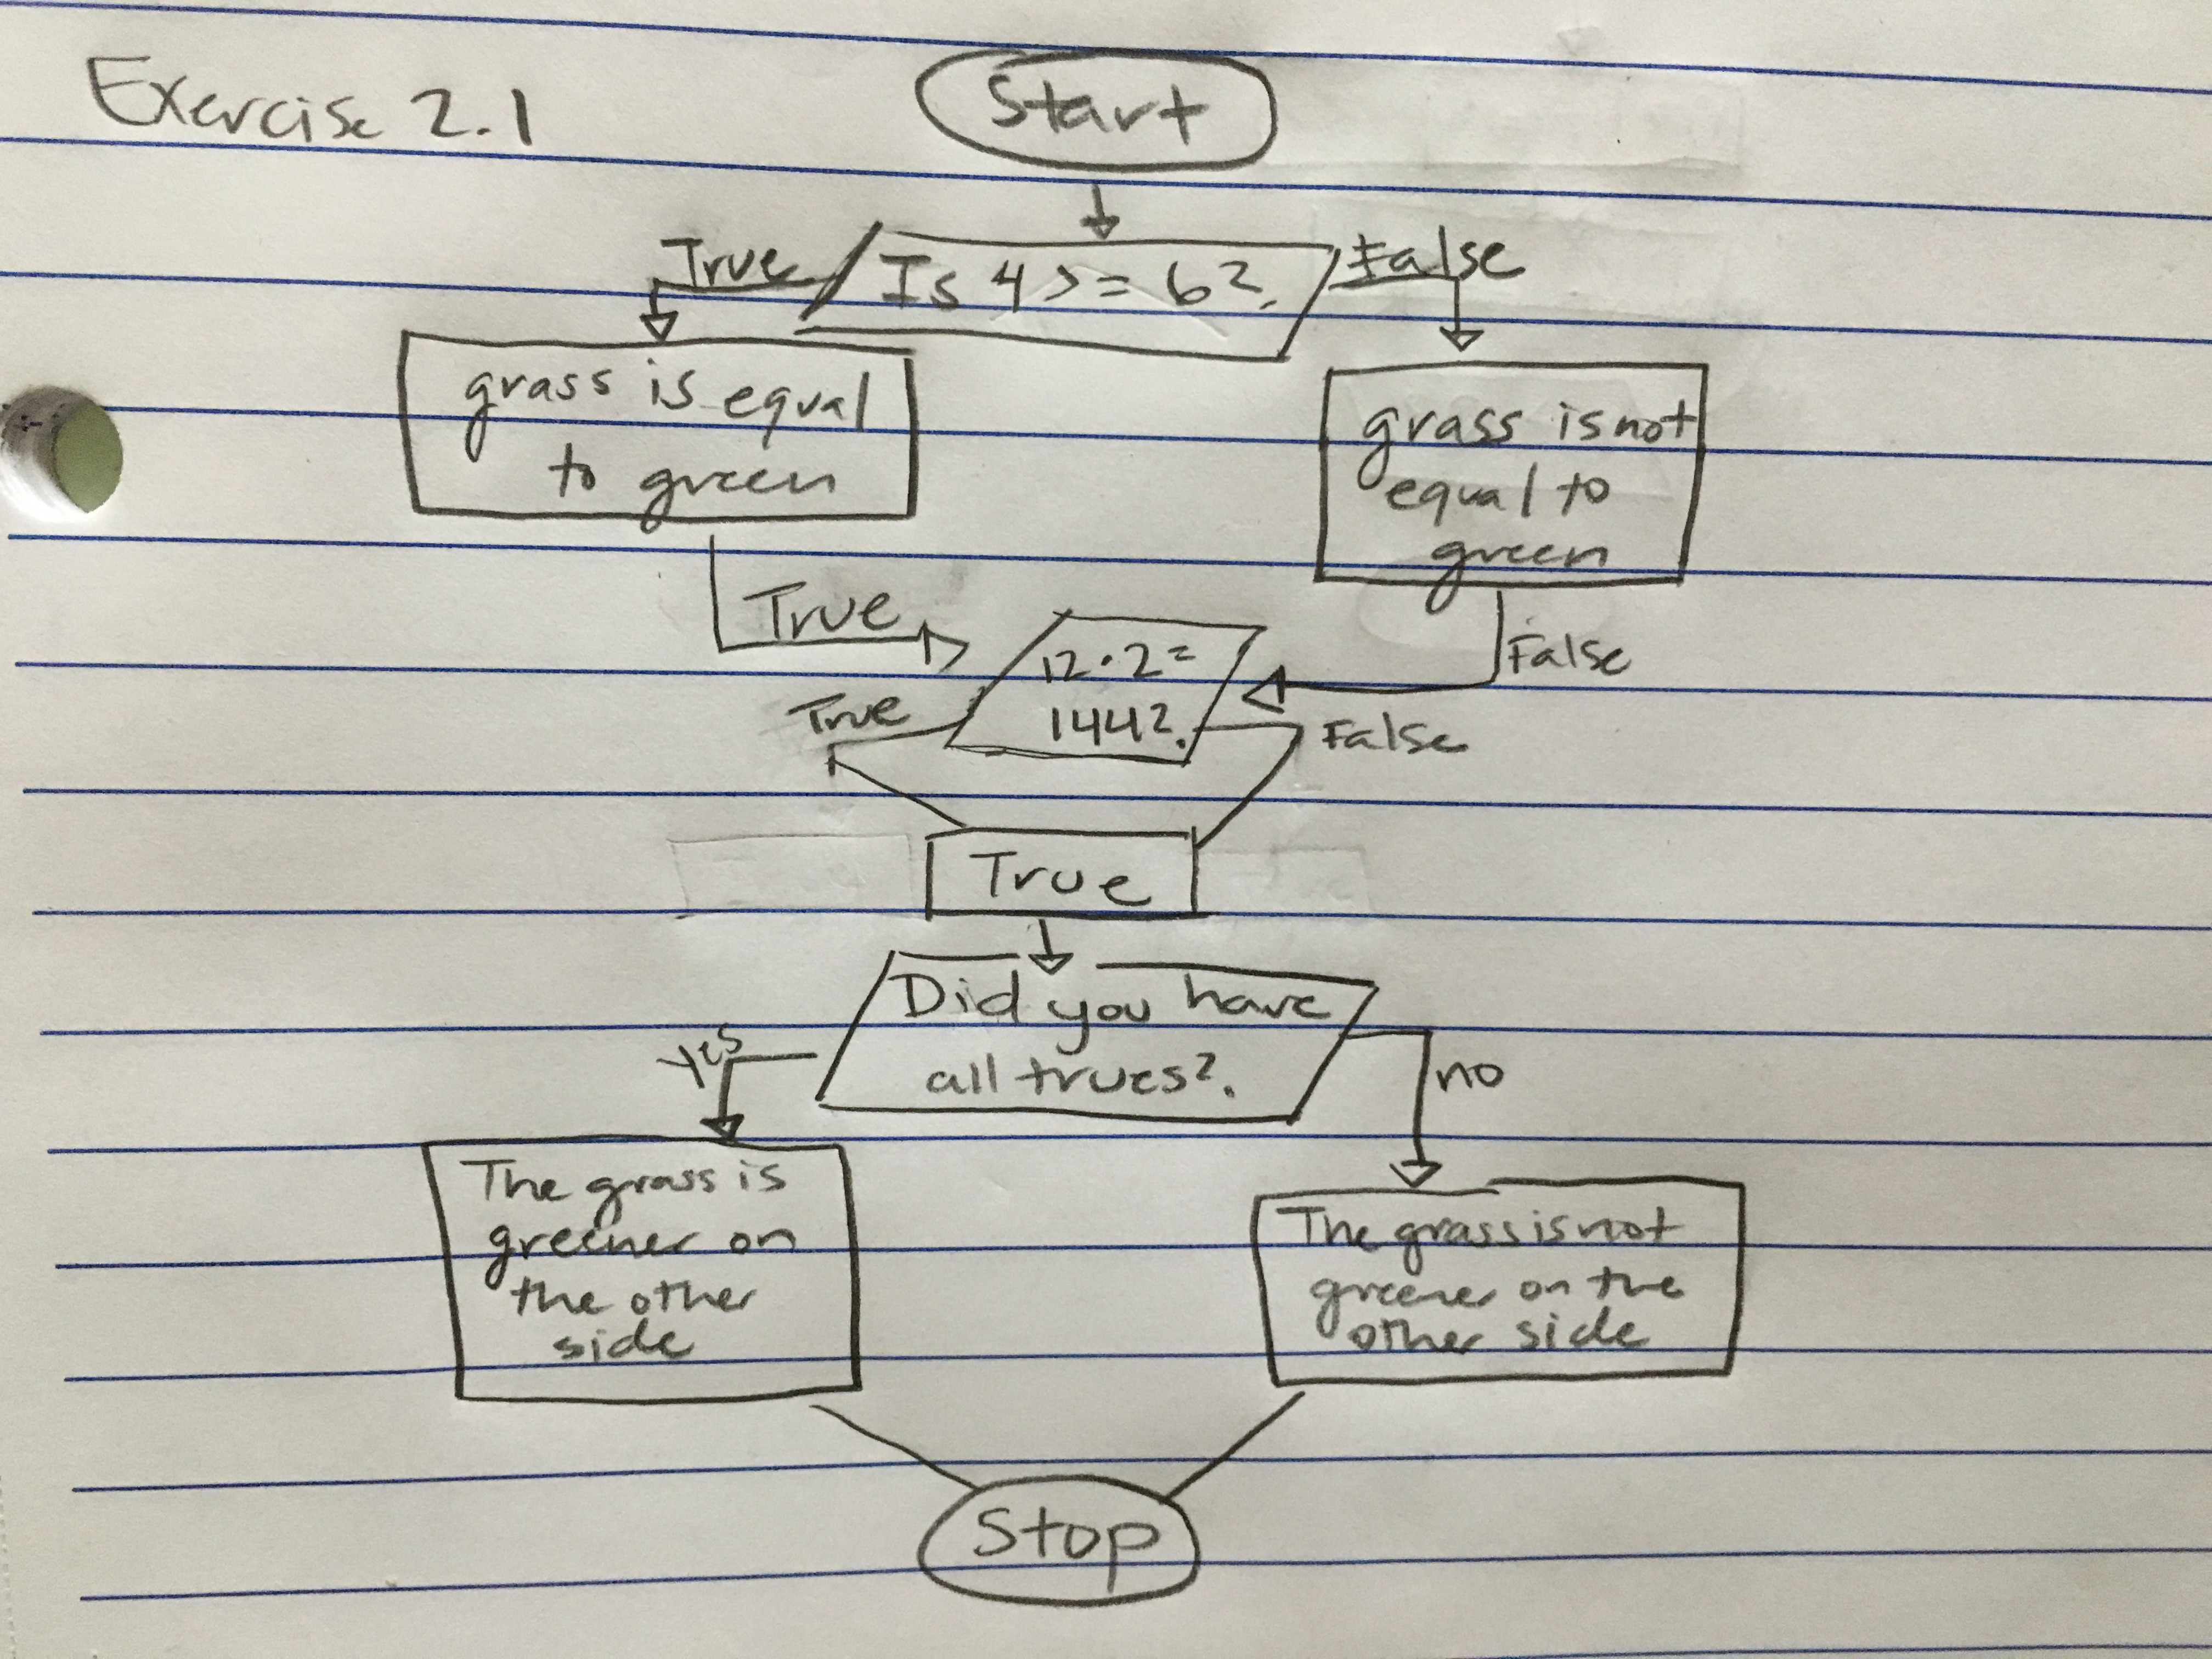 Exercise 2.1
Start
True
Is 4 >= 6?
False
grass is equal
to green
grass is not
equal to
green
True
12·2=
144?
False
True
False
True
Did you have
all trues?
yes
no
The grass is
greener on
the other
side
The grass is not
greener on the
other side
Stop